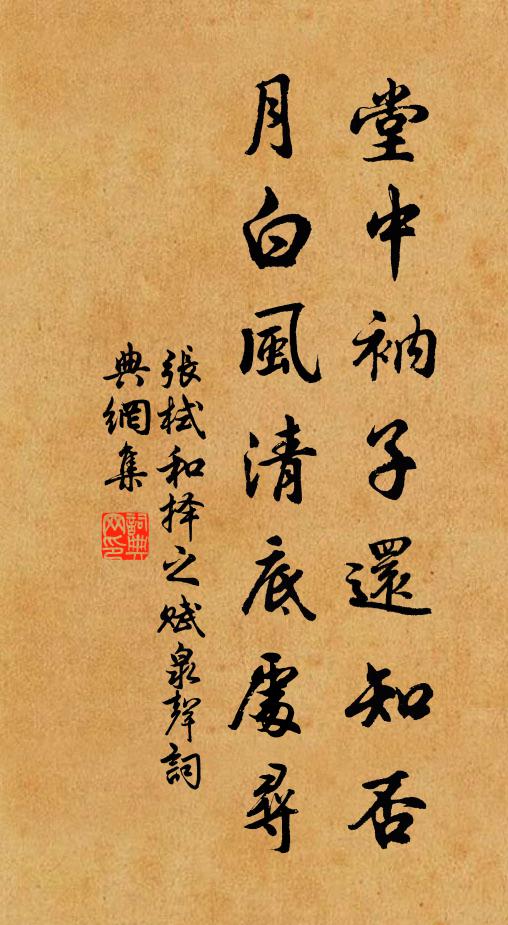 堂中衲子還知否
月白風清底處尋
張栻和择之赋泉聲詞
典網集
詞典網印